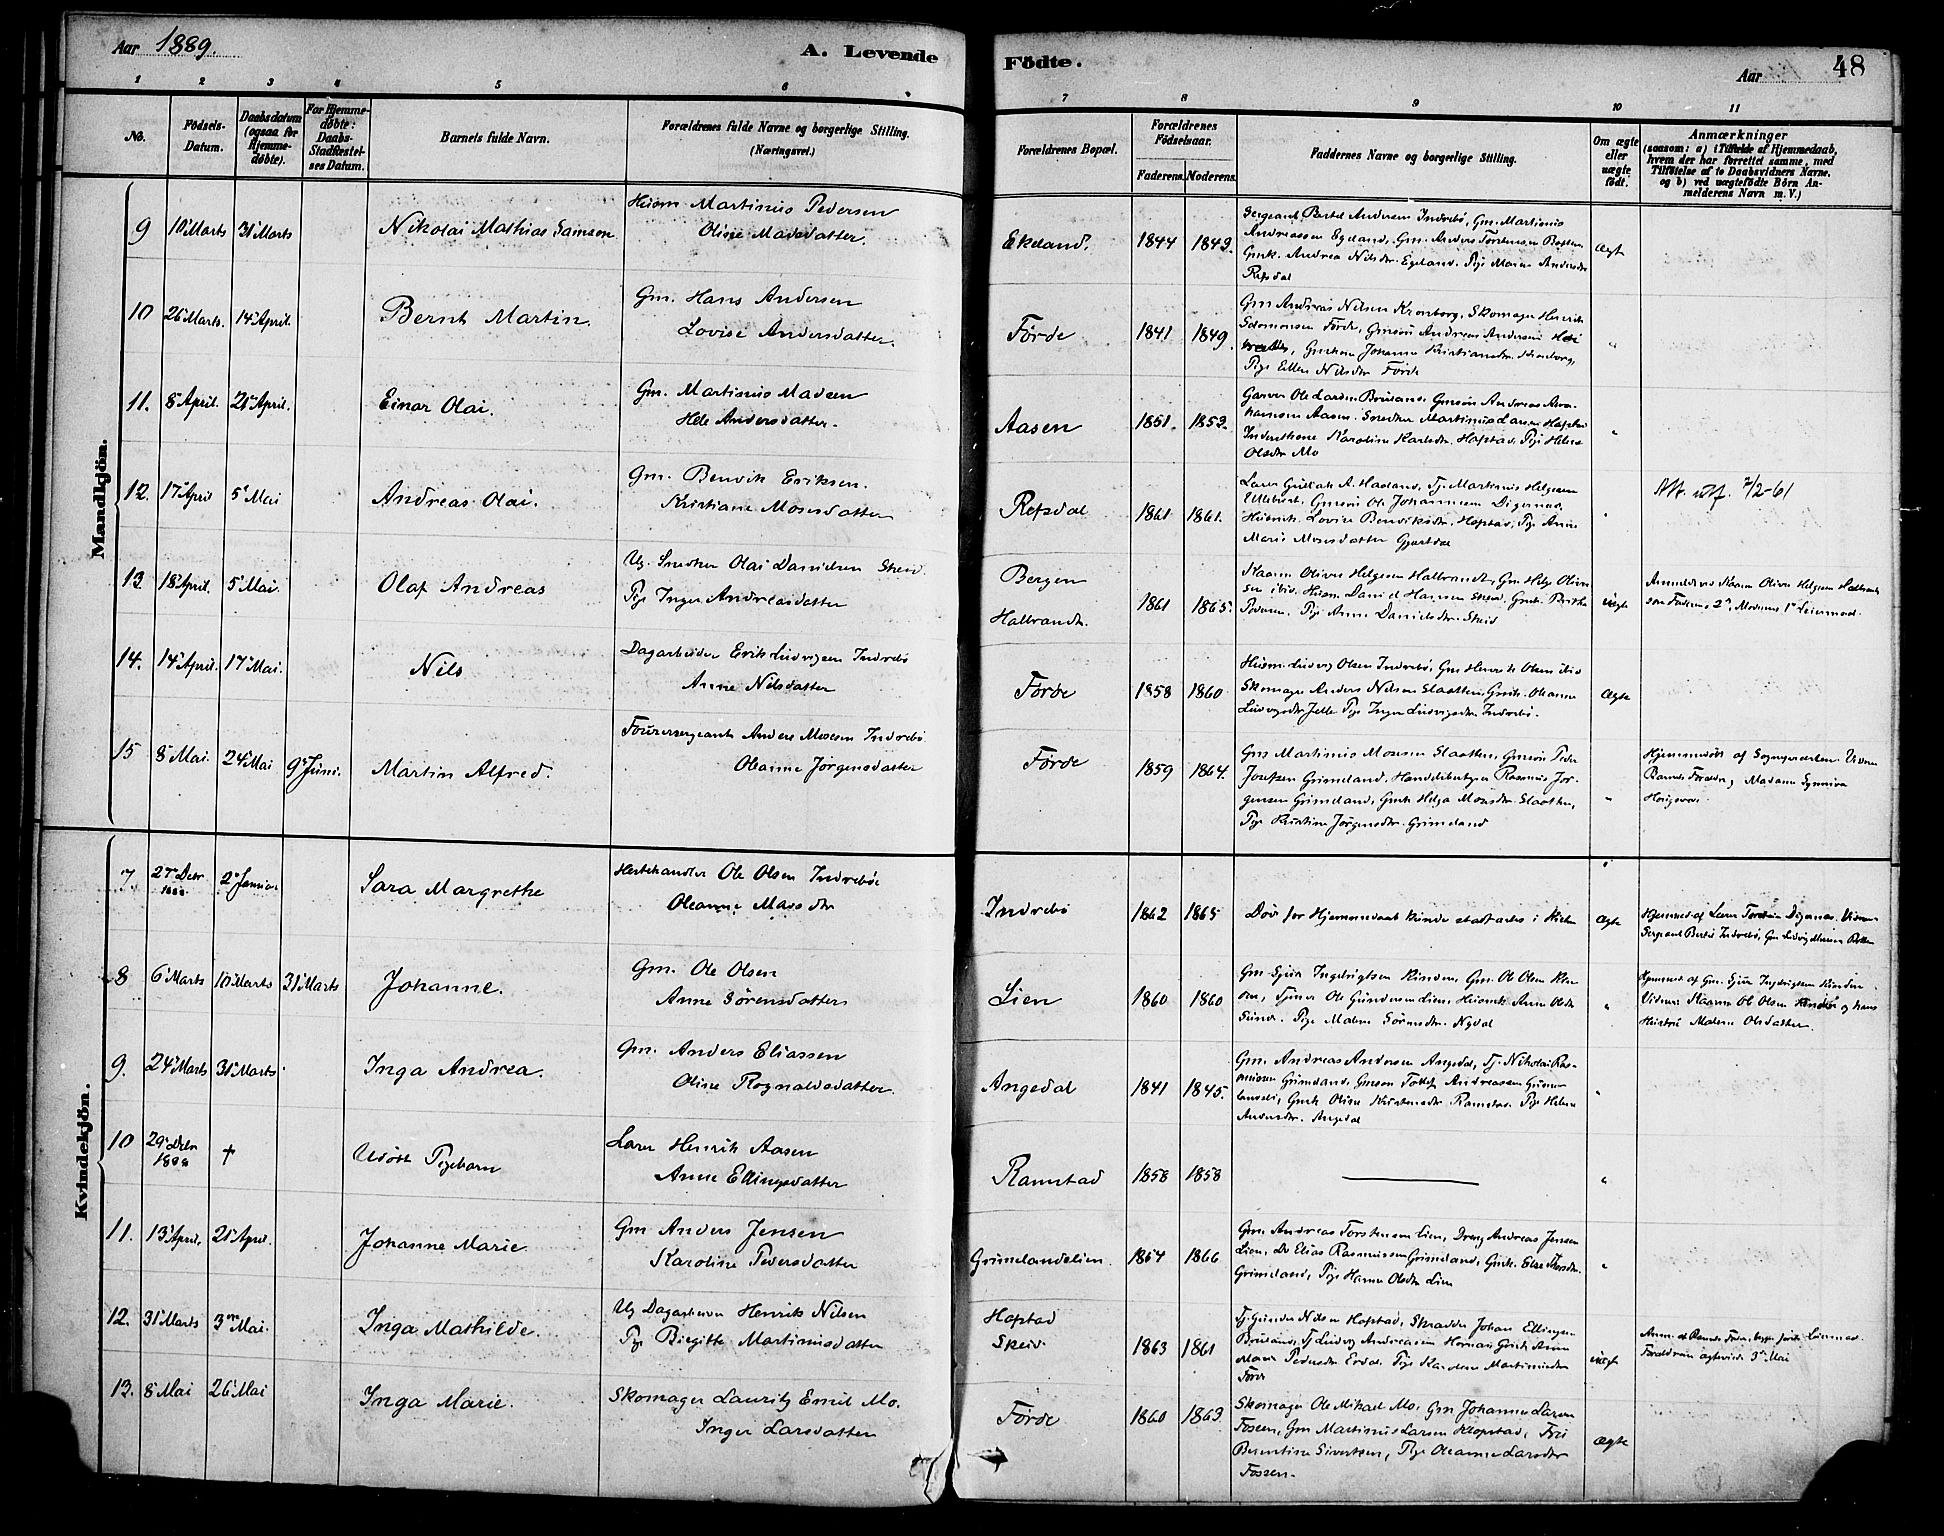 Aar 1889.
A. Levende
Födte.
Aar
48
1 2 3 4 5 6
7 8 9 10 11
No.
Födsels-
Datum.
Daabsdatum
(ogsaa for
Hjemme-
döbte).
For Hjemme-
døbte:
Daabs-
Stadfæstel-
ses Datum.
Barnets fulde Navn.
Forældrenes fulde Navne og borgerlige Stilling.
(Næringsvei.)
Forældrenes Bopæl.
Forældrenes
Födselsaar.
Faderens. Moderens.
Faddernes Navne og borgerlige Stilling.
Om ægte
eller
uægte
født.
Anmærkninger
(saasom: a) i Tilfælde af Hjemmedaab,
hvem der har forrettet samme, med
Tilföielse af to Daabsvidners Navne.
og b) ved uægtefödte Börn An-
melderens Navn m. V.)
Mandkjön.
9 10 Marts 31 Marts Nikolai Mathias Samson
Husm Martinus Pedersen
Oline Madsdatter.
Ekeland. 1844 1843.
Sergeant Bertel Andersen Indrebø, Gm. Martinus
Andreassen Egeland, Gm. Anders
Gmk. Andrea Nilsdr. Egeland. Pige Maren Andersdr
Refsdal
Ægt
10 26 Marts. 14 April. Bernt Martin.
Gm. Hans Andersen
Lovise Andersdatter.
Førde 1841 1849.
Gm Andreas Nilsen Kronborg, Skomager Henrik
Salomonsen Førde, Gmsøn Andreas Andersen
Gmkone Johanne Kristiansdr. Kronborg,
Pige Ellen Nilsdr Førde
"
11. 8 April. 21 April. Einar Olai.
Gm. Martinus Madsen
Hele Andersdatter.
Aasen 1851. 1852.
Garver Ole Larsen Bruland, Gmsøn Andreas
Aasen. Snedker Martinus Larsen Hafstad
Karoline Karlsdr. Hafstad, Pige Helene
Olsdtr Mo
"
12. 17 April 5 Mai Andreas Olai.
Gm. Bendik Eriksen.
Kristiane Mosesdatter
Refsdal 1861 1861.
Lærer Gullak A. Haaland, Tj. Martinus Helgesen
Gmsøn Ole Johannessen Digernes,
Lovise Bendiksdr. Hafstad, Pige Anne
Marie Mosesdatter
"
Att. utf. 7/2-61
13 18 April. 5 Mai. Olaf Andreas
Ug. Snedker Olai Danielsen Skei
Pige Inger Andreasdatter
Bergen
Halbrandt. 1861 1865.
Kaarm Oliver Helgesen Halbrandt, Gm. Helge Oliver
sen ibid. Husm Daniel Hansen Skei, Gmk. Berthe
Pedersen. Pige Anne Danielsdr. Skei
uægte
Anmeldt ved Kaarm Oliver Helgesen Halbrandt
som Faderens 2', Moderens 1' Leiermaal.
14. 14 April. 17 Mai. Nils
Dagarbeider Erik Ludvigsen Indrebø
Anne Nilsdatter
Førde 1858 1860
Husm. Ludvig Olsen Indrebø, Gm Henrik Olsen ibid
Skomager Anders Nilsen Slaatten, Gmk. Oleanna
Ludvigsdr Jelle Pige Inger Ludvigsdr. Indrebø.
Ægte
15 8 Mai. 24 Mai 9 Juni. Martin Alfred.
Fourersergeant Anders Mosesen Indrebø
Oleanne Jørgensdatter
Førde 1859 1864.
Gm Martinus Monsen Slaatten, Gmsøn Peder
Josefsen Grimeland, Handelsbetjen Rasmus Jør-
gensen Grimeland, Gmk Helga Monsdr. Slaatten,
Pige Kristine Jørgensdtr. Grimeland
"
Hjemmedøbt af Sognepræsten. Vidner
Barnets Forældre, Madame Synneva
Kvindekjön.
7. 27 Debr
1888 2 Januar Sara Margrethe
Hestehandler Ole Olsen Indrebø
Oleanne Madsdtr
Indrebø 1862 1865
Døde før Hjemmedaab kunde stadfæstes i Kirken
Ægte
Hjemmed. af Lærer Digernes. Vidner
Sergeant Bertel Indrebø, Gm Ludvig
8 6 Marts 10 Marts 31 Marts Johanne.
Gm. Ole Olsen
Anne Sörensdatter
Lien 1860 1860
Gm Sjur Ingebrigtsen Kinden, Gm. Ole Olsen
Tjener Ole Gundersen Lien, Anne Olsdr
Sunde. Pige Malene Sörensdtr. Nydal
"
Hjemmed. af Gm. Sjur Ingebrigtsen Kinden
Vidner: Kaarm Ole Olsen og hans
Hustru Malene Olsdatter.
9. 24 Marts 31 Marts. Inga Andrea.
Gm. Anders Eliassen
Oline Rognaldsdatter.
Angedal 1841 1845.
Gm. Andreas Andersen Angedal, Tj. Nikolai Ras-
mussen Grimeland, Gmsøn Tollef Andreassen
Gmk Oline Kristensdr. Ramstad. Pige Helene
Andersdtr. Angedal
"
10 29 Debr
1888 † Udöbt Pigebarn
Lærer Henrik Aasen
Anne Ellingsdatter
Ramstad 1858 1858
"
11. 13 April. 21 April. Johanne Marie.
Gm Anders Jensen
Karoline Pedersdatter
Grimelandslien. 1864 1866
Gm. Andreas Torstensen Lien, Dreng Andreas Jensen
Lien, Do Elias Rasmussen Grimeland, Gmk. Else
Grimeland, Pige Hanna Olsdtr Lien
"
12. 31 Marts 3 Mai. Inga Mathilde.
Ug Dagarbeider Henrik Nilsen
Pige Birgitte Martinusdatter
Hafstad
Skeid. 1863 1861
Tj. Gunder Nilsen Hafstad, Skrædder Johan Ellingsen
Bruland, Tj Ludvig Andreassen Hornnæs
Marie Pedersdtr Erdal Pige Karoline Martinusdtr
Førde
uægt
Anm. af Barnets Fader, begge første Leiermaal.
Forældrene ægteviede 3 Mai
13. 8 Mai 26 Mai Inga Marie.
Skomager Lauritz Emil Mo.
Inger Larsdatter
Førde 1860 1863.
Skomager Ole Mikael Mo, Gm Johannes Larsen
Fossen, Gm Martinus Larsen Hafstad, Fru
Berentine Sivertsen, Pige Oleanne Larsdtr
Fossen.
Ægte